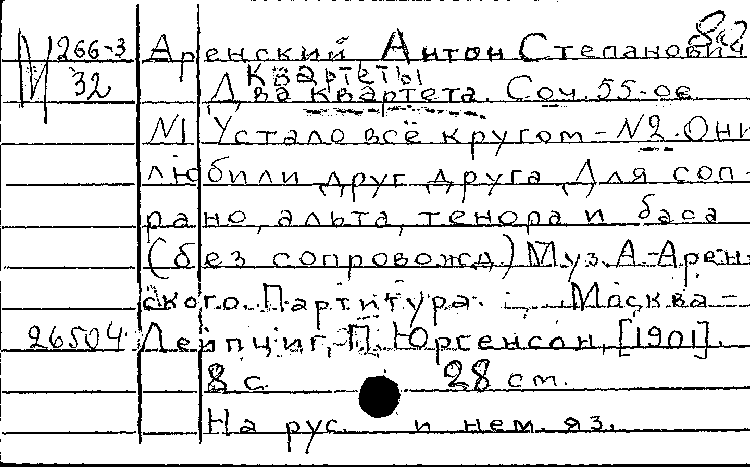 82
М 266-3 Аренский Антон Степанович
32 Квартеты
Два квартета. Соч. 55-ое
N1 Устало всё кругом - N2. Они
любили друг друга Для соп-
рано, альта, тенора и баса
(без сопровожд.) Муз. А. Арен-
ского. Партитура. Москва -
26504 Лейпциг, П. Юргенсон, [1901].
8 с. 28 см.
На рус. и нем. яз.